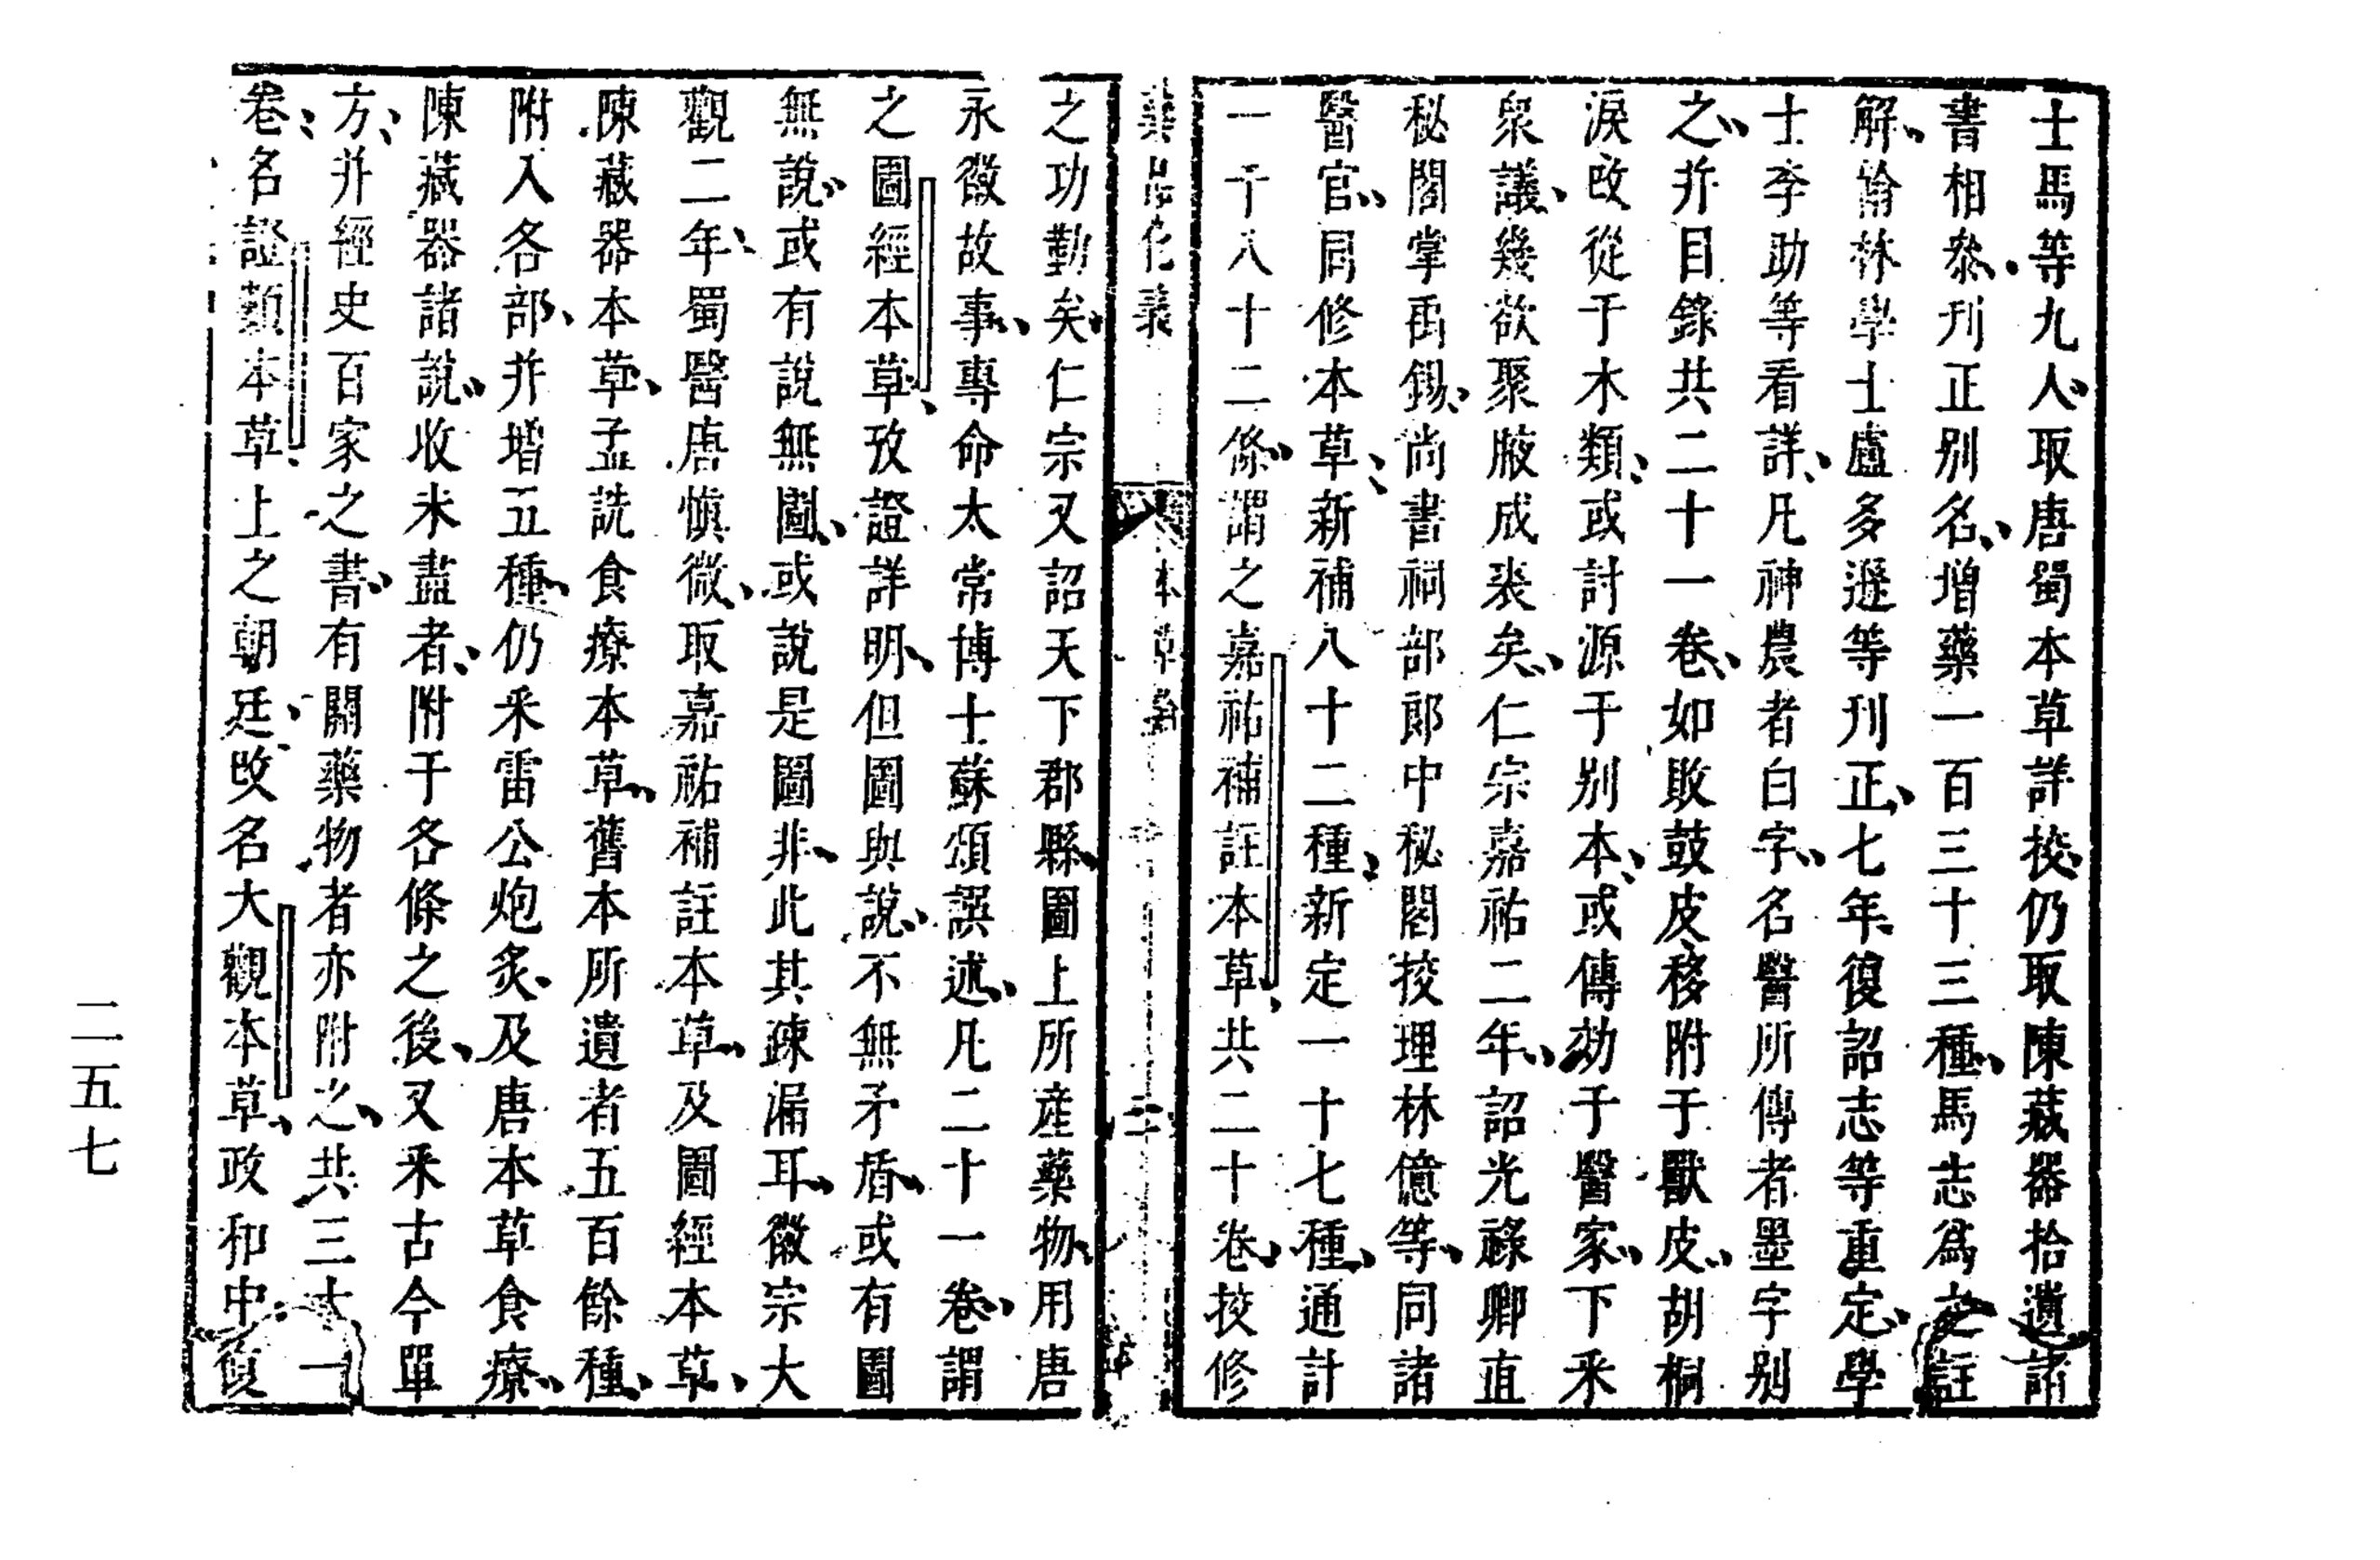 士馬等九人取唐蜀本草詳挍仍取陳藏器拾遺諸
書相叅刋正别名增藥一百三十三種馬志爲之註
解翰林學士盧多遜等刋正七年復詔志等重定學
士李助等看詳凡神農者白字名醫所傳者墨字别
之并目錄共二十一卷如敗鼓皮移附于獸皮胡桐
淚改從于木類或討源于别本或傳効于醫家下釆
衆議幾欲聚腋成裘矣仁宗嘉祐二年詔光祿卿直
秘閣掌禹錫尚書祠部郎中秘閣挍理林億等同諸
醫官同修本草新補八十二種新定一十七種通計
一千八十二條謂之嘉祐補註本草共二十卷挍修
藥品化義 本草論 三
之功勤矣仁宗又詔天下郡縣圖上所產藥物用唐
永徽故事專命太常博士蘇頌譔述凡二十一卷謂
之圖經本草攷證詳明但圖與說不無矛盾或有圖
無說或有說無圖或說是圖非此其疎漏耳徽宗大
觀二年蜀醫唐慎微取嘉祐補註本草及圖經本草
陳藏器本草孟詵食療本草舊本所遺者五百餘種
附入各部并增五種仍釆雷公炮炙及唐本草食療
陳藏器諸說收未盡者附于各條之後又釆古今單
方并經史百家之書有關藥物者亦附之共三十一
卷名證類本草上之朝廷改名大觀本草政和中復
二五七